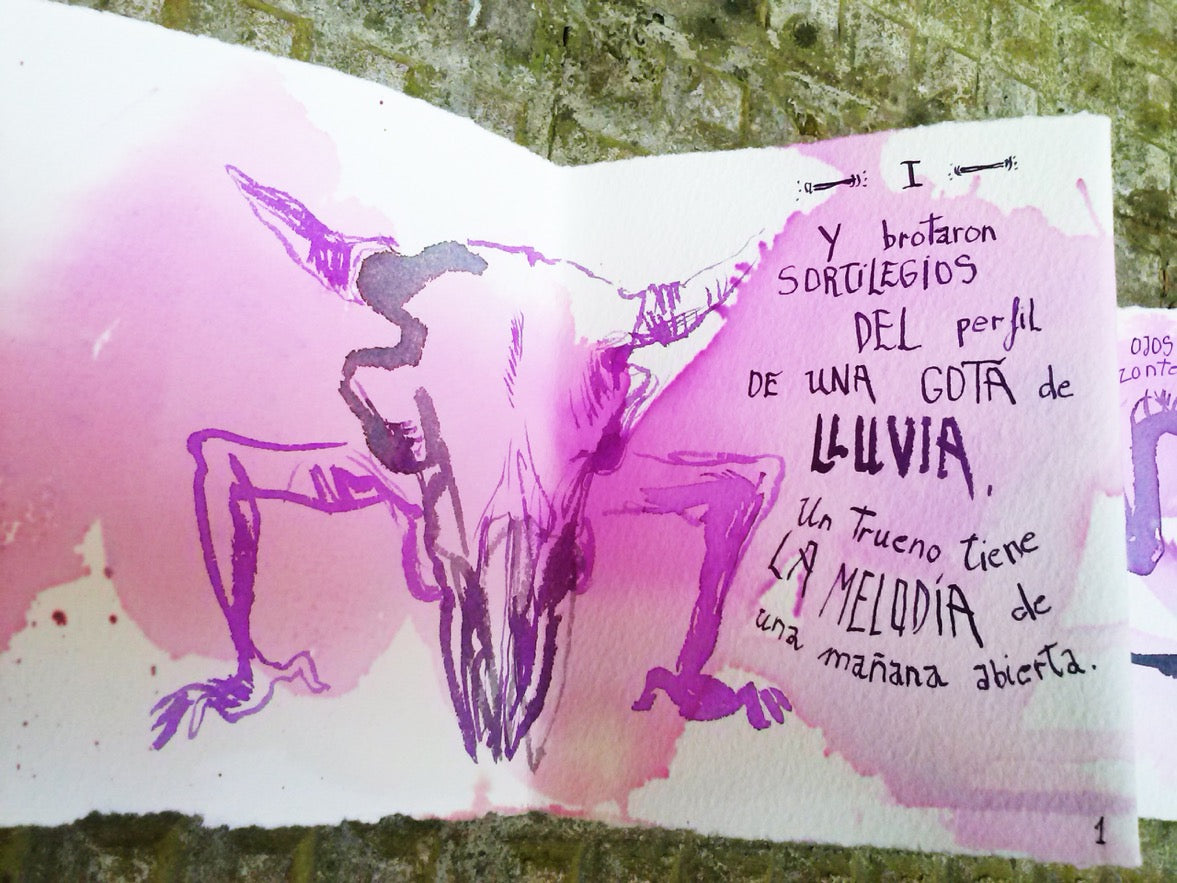 I
Y brotaron
SORTILEGIOS
DEL perfil
DE UNA GOTA de
LLUVIA,
Un trueno tiene
LA MELODÍA de
una mañana abierta.
1
OJOS